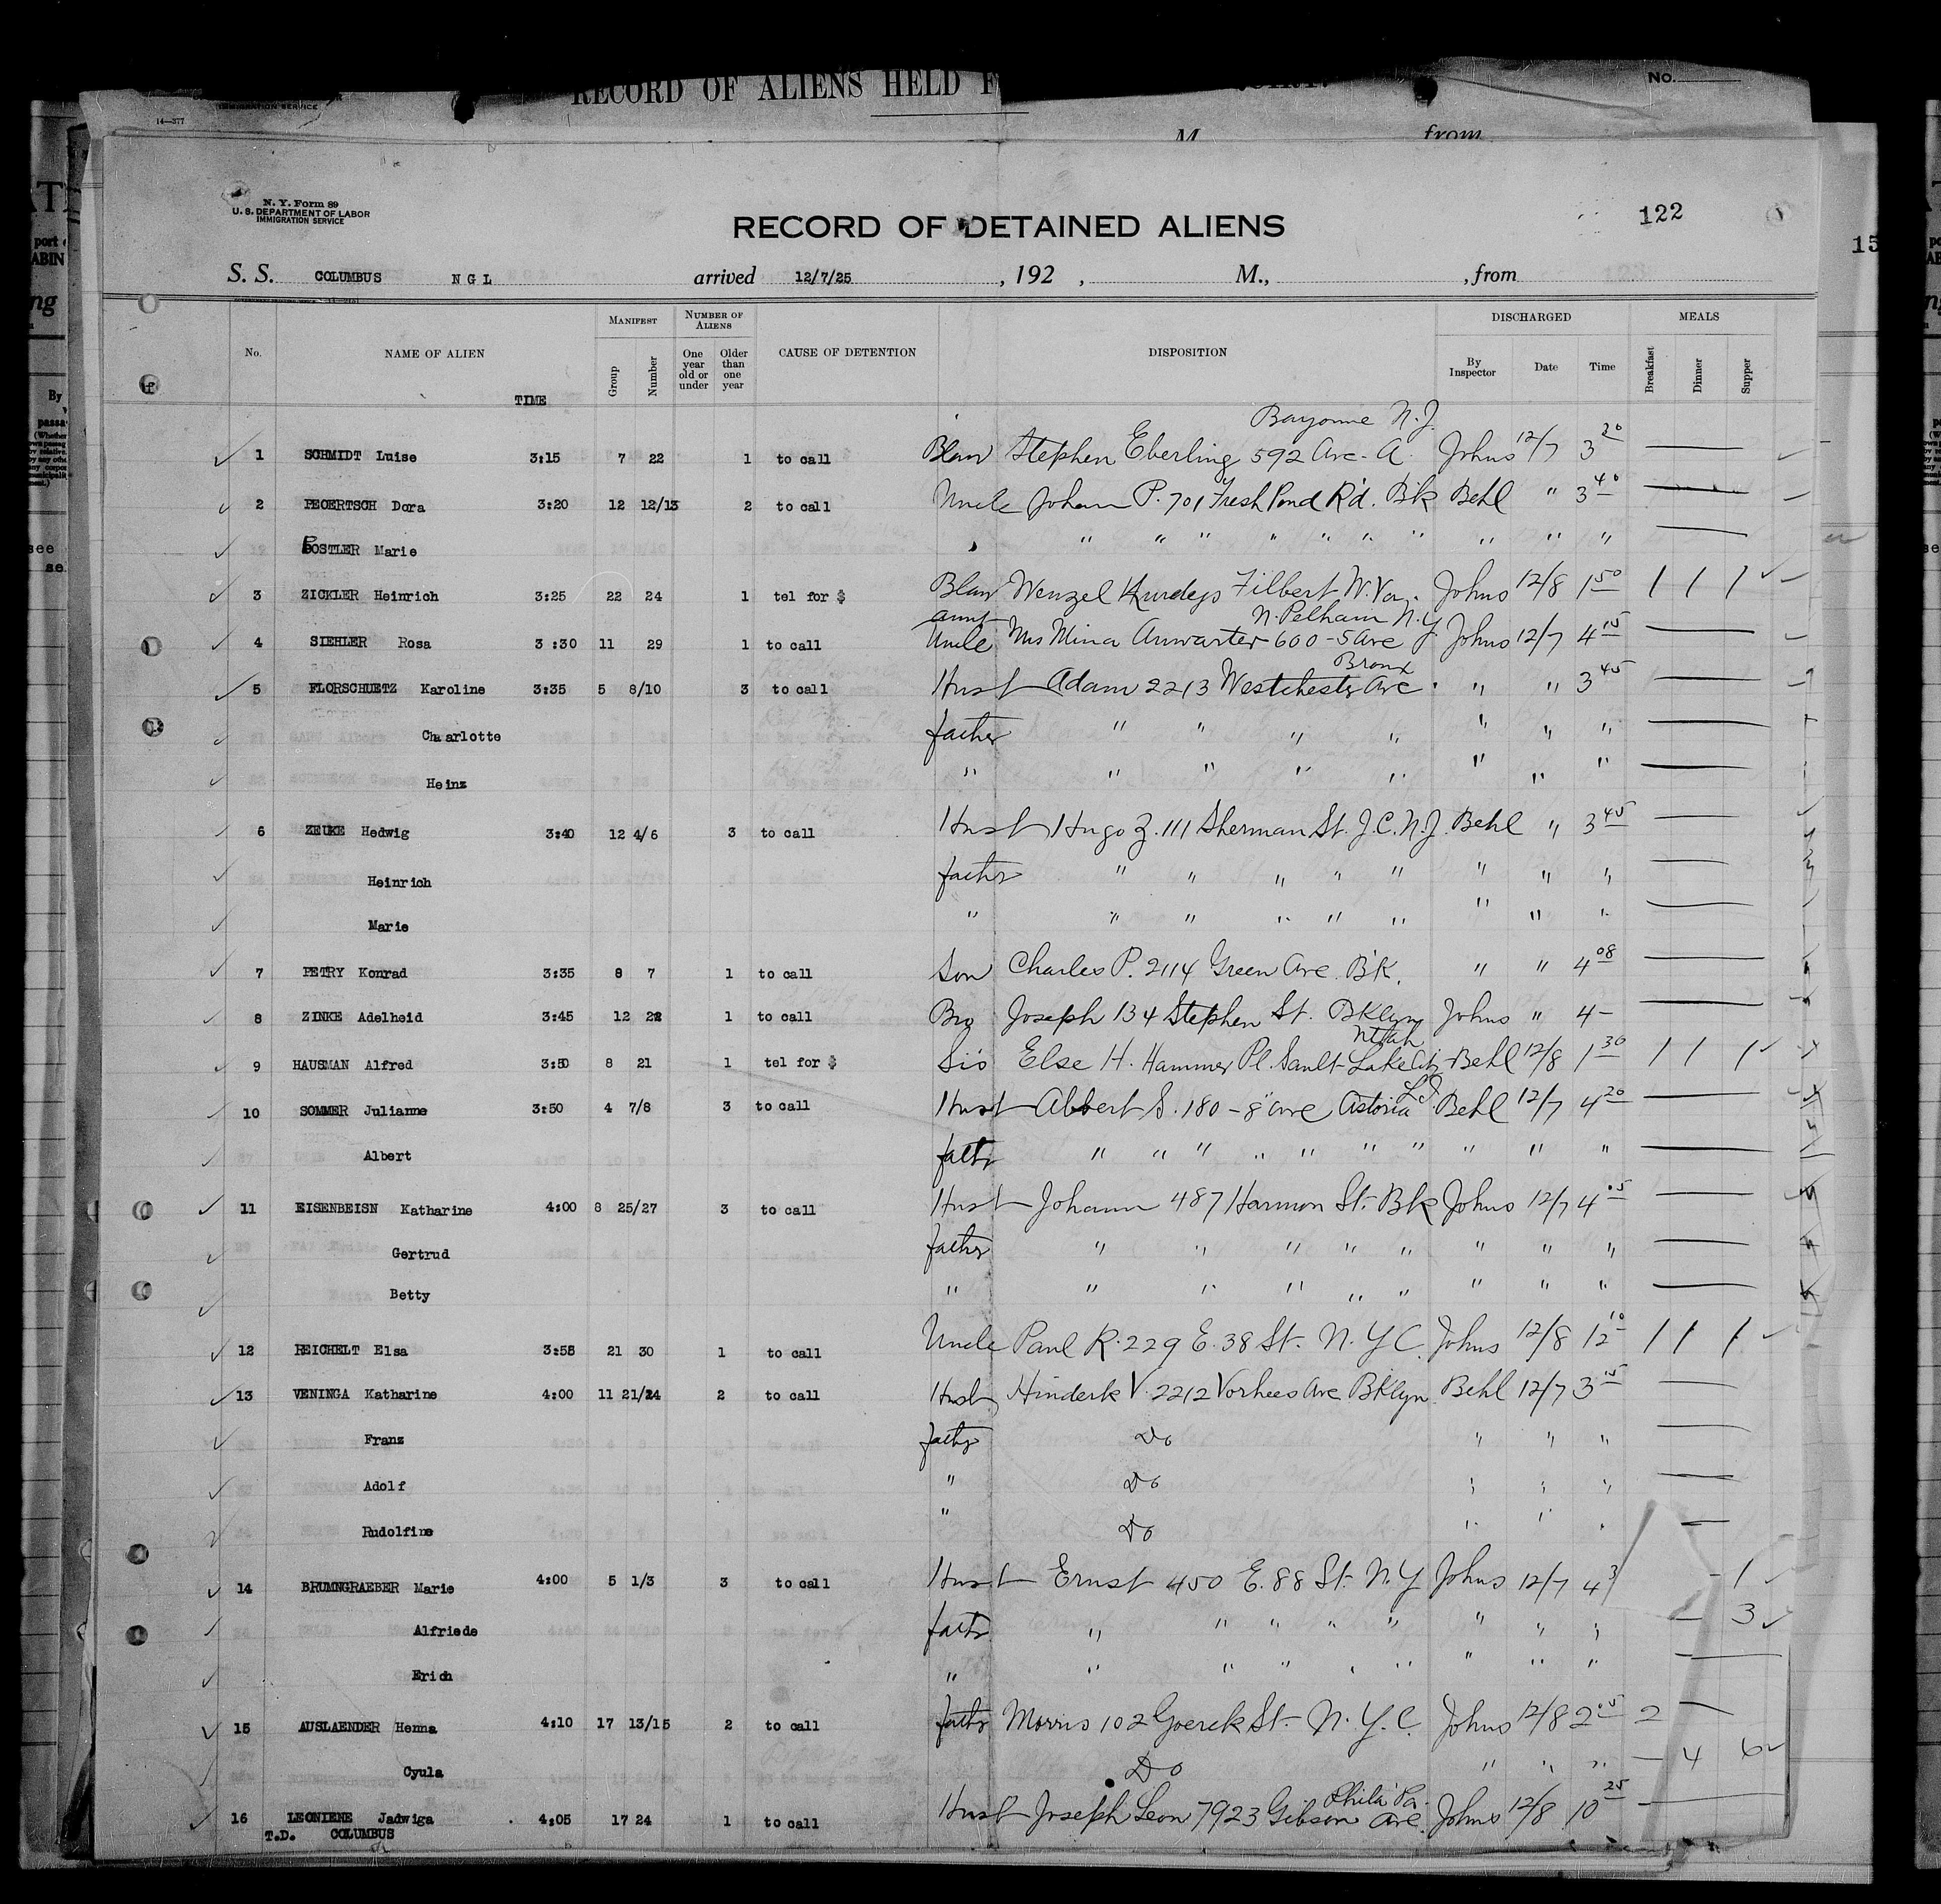 RECORD OF ALIENS HELD F
No.
IMMIGRATION SERVICE
14—377
M
from
N. Y. Form 89
U. S. DEPARTMENT OF LABOR
IMMIGRATION SERVICE
RECORD OF DETAINED ALIENS
122
15
S. S. COLUMBUS N G L arrived 12/7/25 , 192 , M., , from
No. NAME OF ALIEN TIME MANIFEST Group Number NUMBER OF ALIENS One year old or under Older than one year CAUSE OF DETENTION DISPOSITION DISCHARGED By Inspector Date Time MEALS Breakfast Dinner Supper
Bayonne N.J.
1 SCHMIDT Luise 3:15 7 22 1 to call Blaw Stephen Eberling 592 Ave. A. Johns 12/7 3 20
2 PEOERTSCH Dora 3:20 12 12/13 2 to call Uncle Johann P. 701 Fresh Pond R'd. B'k Behl " 3 40
POSTLER Marie " " " " " " " " " "
3 ZICKLER Heinrich 3:25 22 24 1 tel for $ Blaw Wenzel Filbert W. Va. Johns 12/8 1 50 1 1 1
aunt N. Pelham N.Y.
4 SIEHLER Rosa 3:30 11 29 1 to call Uncle Mrs Mina Anwarter 600 - 5 Ave Johns 12/7 4 15
Bronx
5 FLORSCHUETZ Karoline 3:35 5 8/10 3 to call Husb Adam 2213 Westchester Ave. " " 3 45
Charlotte father " " " " " " "
Heinz " " " " " " " "
6 ZEUKE Hedwig 3:40 12 4/6 3 to call Husb Hugo Z. 111 Sherman St. J.C. N.J. Behl " 3 45
Heinrich father " " " " " " " "
Marie " " " " " " " " "
7 PETRY Konrad 3:35 8 7 1 to call Son Charles P. 2114 Green Ave. B'K. " " 4 08
8 ZINKE Adelheid 3:45 12 22 1 to call Bro Joseph 134 Stephen St. BKlyn Johns " 4 -
Utah
9 HAUSMAN Alfred 3:50 8 21 1 tel for $ Sis Else H. Hammer Pl. Sault Lake City Behl 12/8 1 30 1 1 1
L.I.
10 SOMMER Julianne 3:50 4 7/8 3 to call Husb Albert S. 180 - 8" Ave Astoria Behl 12/7 4 20
Albert father " " " " " " " " " "
11 EISENBEISN Katharine 4:00 8 25/27 3 to call Husb Johann 487 Harmon St. Bk Johns 12/7 4 05
Gertrud father " " " " " " " "
Betty " " " " " " " " "
12 REICHELT Elsa 3:55 21 30 1 to call Uncle Paul R. 229 E. 38 St. N. Y C. Johns 12/8 12 10 1 1 1
13 VENINGA Katharine 4:00 11 21/24 2 to call Husb Hinderk V. 2212 Vorhees Ave BKlyn Behl 12/7 3 15
Franz father Do " " "
Adolf " Do " " "
Rudolfine " Do " " "
14 BRUMNGRAEBER Marie 4:00 5 1/3 3 to call Husb Ernst 450 E. 88 St. N. Y Johns 12/7 4 3 1
Alfriede father " " " " " " " " 3
Erich " " " " " " " " "
15 AUSLAENDER Henna 4:10 17 13/15 2 to call father Morris 102 Goerck St. N. Y. C. Johns 12/8 2 05 2
Gyula Do " " " 4 6
Phila Pa.
16 LEONIENE Jadwiga 4:05 17 24 1 to call Husb Joseph Leon 7923 Gibson Ave. Johns 12/8 10 25
T.D. COLUMBUS